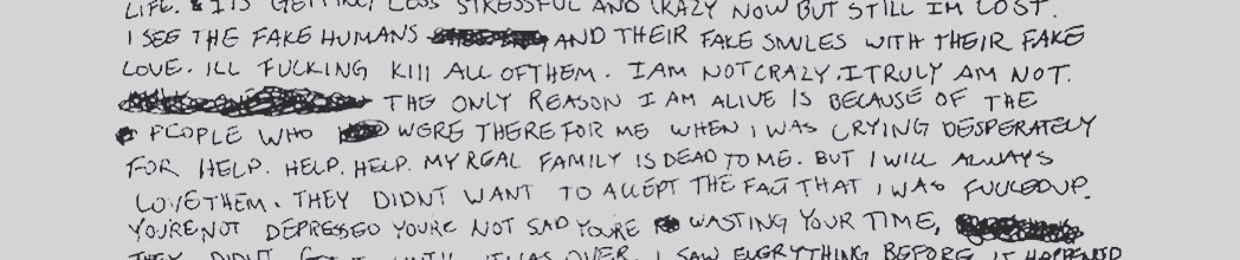 LIFE. & ITS GETTING LESS STRESSFUL AND CRAZY NOW BUT STILL IM LOST.
I SEE THE FAKE HUMANS AND THEIR FAKE SMILES WITH THEIR FAKE
LOVE. ILL FUCKING KIll ALL OFTHEM. I AM NOT CRAZY. I TRULY AM NOT.
THE ONLY REASON I AM ALIVE IS BECAUSE OF THE
PEOPLE WHO WERE THERE FOR ME WHEN I WAS CRYING DESPERATELY
FOR HELP. HELP. HELP. MY REAL FAMILY IS DEAD TO ME. BUT I WILL ALWAYS
LOVE THEM. THEY DIDNT WANT TO ACCEPT THE FACT THAT I WAS FUCKED UP.
YOU'RE NOT DEPRESSED YOURE NOT SAD YOURE WASTING YOUR TIME,
THEY DIDNT GET IT UNTIL IT WAS OVER. I SAW EVERYTHING BEFORE IT HAPPENED